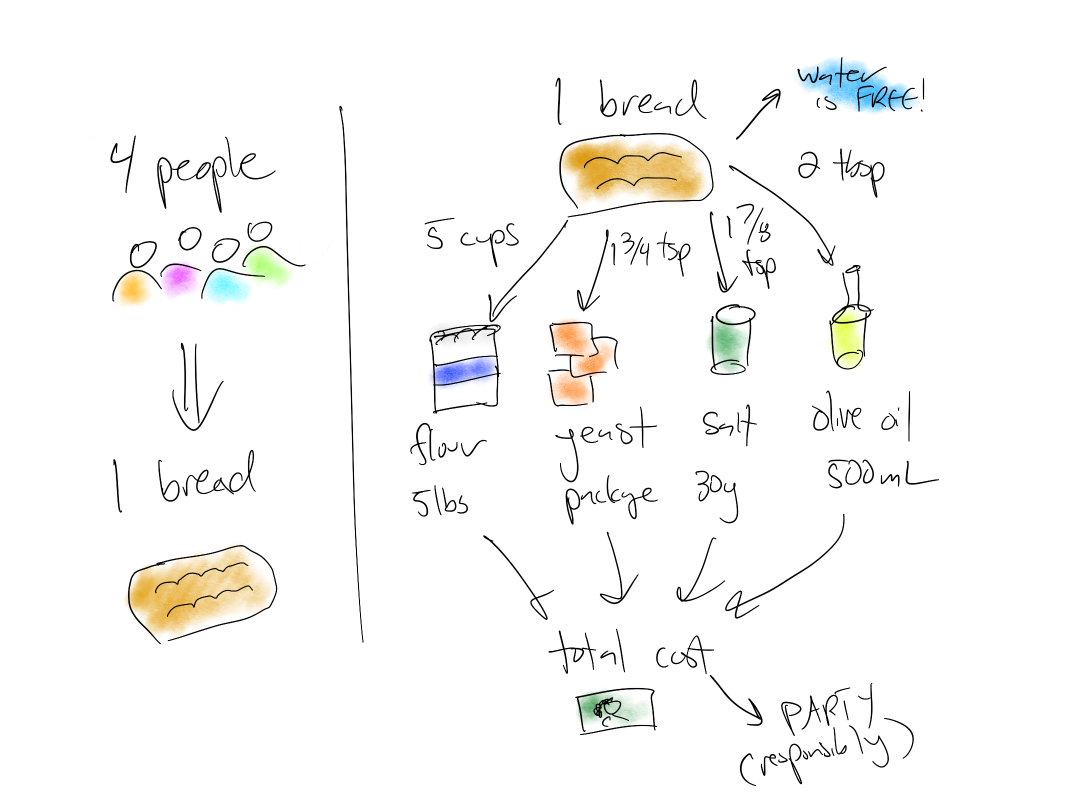 4 people
1 bread
1 bread
water
is FREE!
5 cups
1 3/4 tsp
1 7/8
tsp
2 tbsp
flour
5lbs
yeast
package
salt
30g
olive oil
500mL
total cost
PARTY
(responsibly)